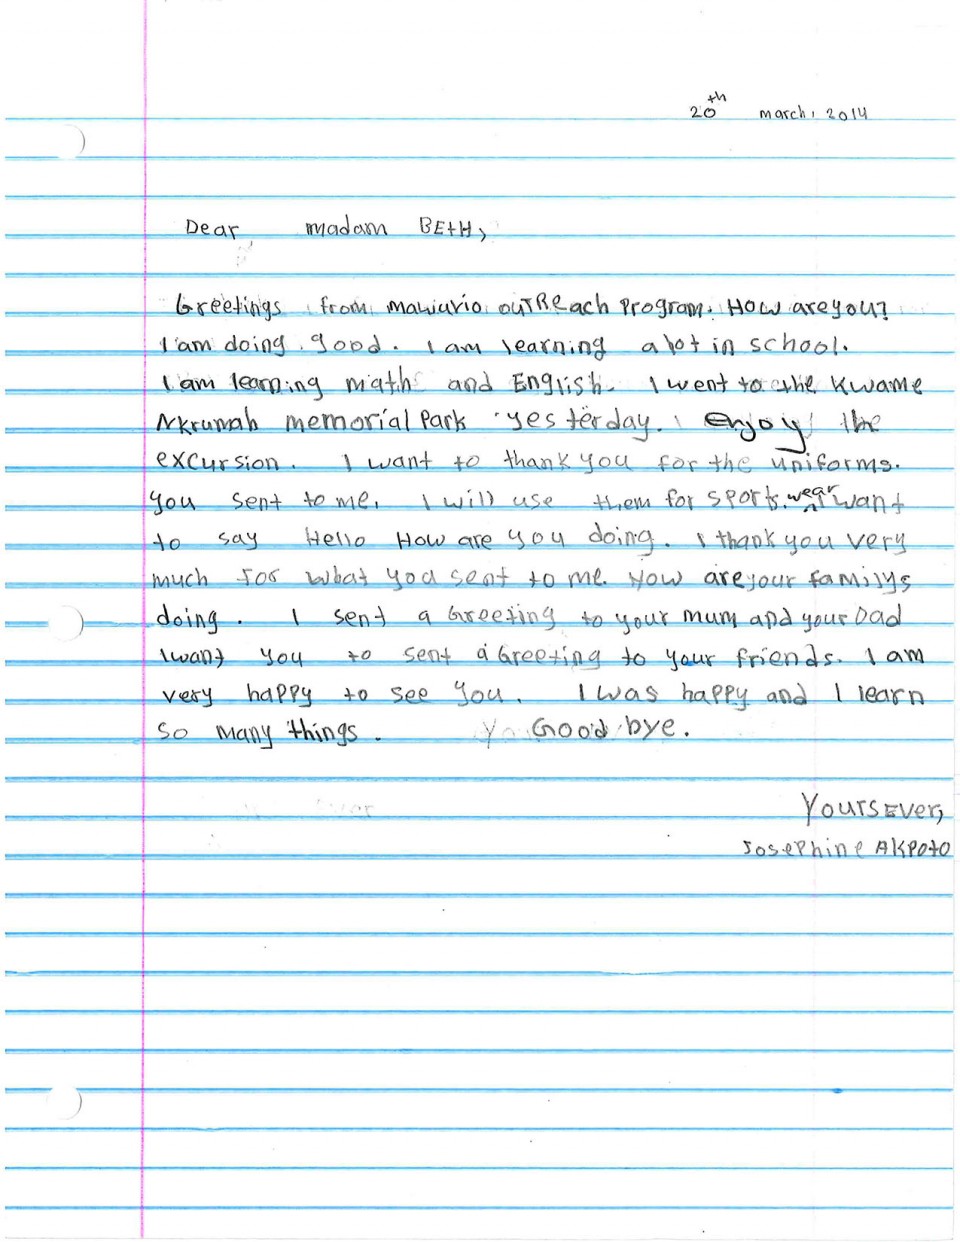 20th march, 2014
Dear, madam BEtH,
Greetings from mawuvio outREach program. How are you?
I am doing good. I am learning a lot in school.
I am learning math and English. I went to the Kwame
Nkrumah memorial Park yesterday. I enjoy the
excursion. I want to thank you for the uniforms.
you sent to me. I will use them for sports. wear I want
to say Hello How are you doing. I thank you very
much for what you sent to me. How are your familys
doing. I sent a Greeting to your mum and your Dad
I want you to sent a Greeting to your friends. I am
very happy to see you. I was happy and I learn
so many things. Good bye.
Yours Ever,
Josephine AKPoto